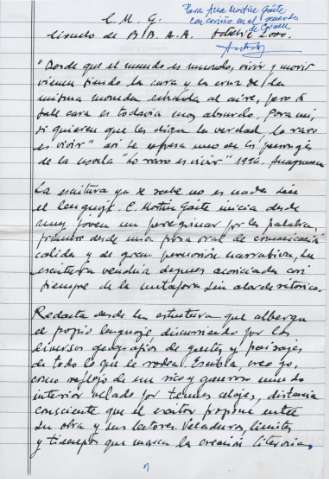 Para Ana Martín Gaite
con cariño en el recuerdo
C. M. G.
Círculo de BB. A. A. Febrero 2000.
"Desde que el mundo es mundo, vivir y morir
vienen siendo la cara y la cruz de la
misma moneda echada al aire, pero si
sale cara es todavía más absurdo. Para mí,
si quieren que les diga la verdad, lo raro
es vivir" así se expresa uno de los personajes
de la novela "Lo raro es vivir" 1996. Anagrama
La escritura ya se sabe no es nada sin
el lenguaje. C. Martín Gaite inicia desde
muy joven un peregrinar por la palabra,
desde una prosa oral de comunicación
calida y de gran persuasión narrativa, su
escritura vendría después acompañada casi
siempre de la metáfora sin alarde retórico.
Redacta desde la estructura que alberga
el propio lenguaje, discurriendo por los
diversos geografías de gentes y paisajes
de todo lo que la rodea. Escribía, creo yo,
como reflejo de un rico y generoso mundo
interior velado por tenues celajes, distancia
consciente que el creador propone entre
su obra y sus lectores. Veladuras, límites
y tiempos que marca la creación literaria,
1